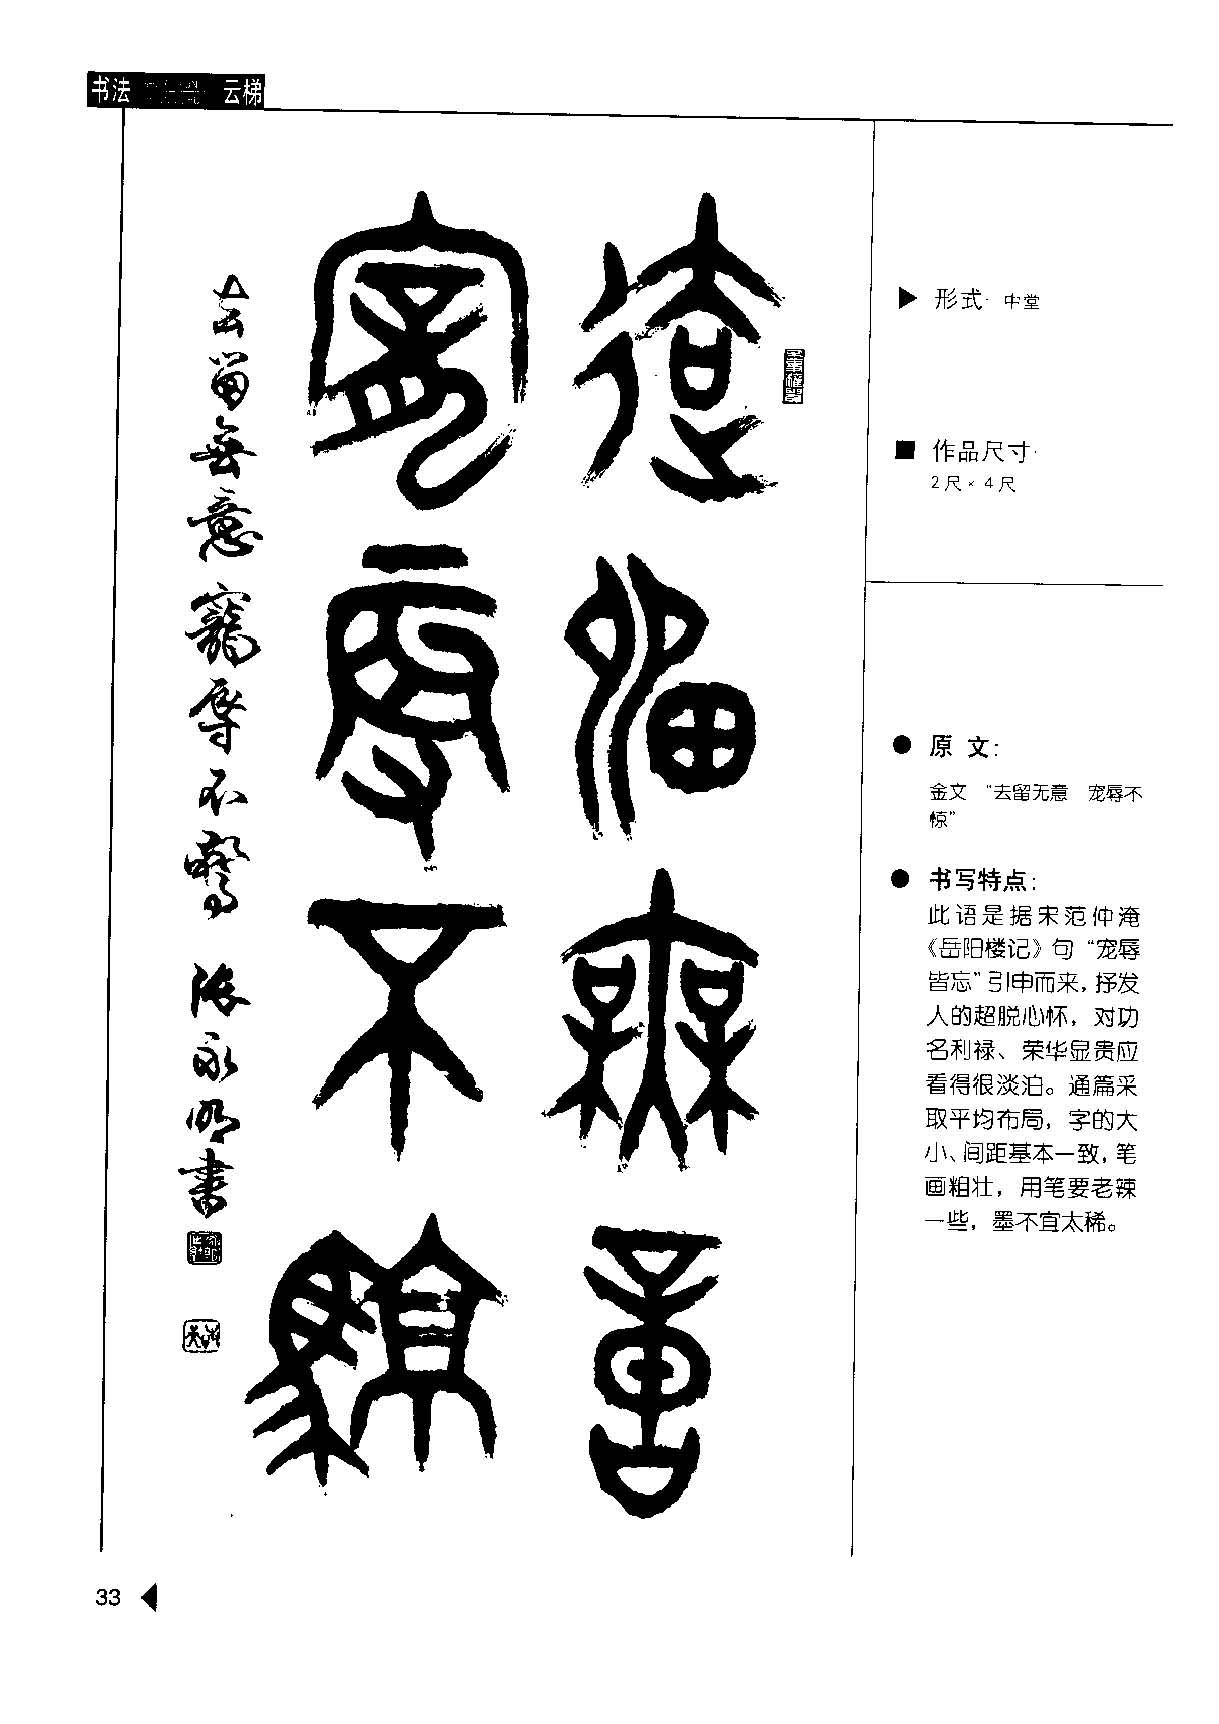 书法 云梯
去留無意
寵辱不驚
去留無意寵辱不驚 張永明書
形式· 中堂
作品尺寸·
2尺×4尺
原 文:
金文 “去留无意 宠辱不
惊”
书写特点:
此语是据宋范仲淹
《岳阳楼记》句“宠辱
皆忘”引申而来,抒发
人的超脱心怀,对功
名利禄、荣华显贵应
看得很淡泊。通篇采
取平均布局,字的大
小、间距基本一致,笔
画粗壮,用笔要老辣
一些,墨不宜太稀。
33